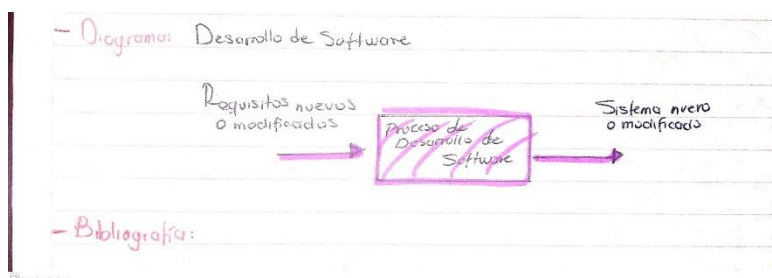 - Diagrama: Desarrollo de Software
Requisitos nuevos
o modificados
Proceso de
Desarrollo de
Software
Sistema nuevo
o modificado
- Bibliografía: